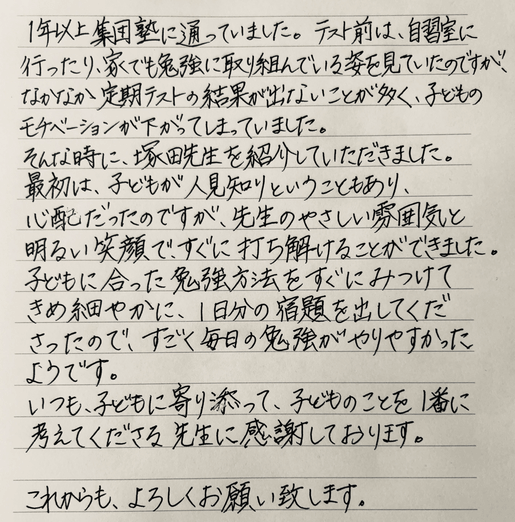 1年以上集団塾に通っていました。テスト前は、自習室に
行ったり、家でも勉強に取り組んでいる姿を見ていたのですが、
なかなか定期テストの結果が出ないことが多く、子どもの
モチベーションが下がってしまっていました。
そんな時に、塚田先生を紹介していただきました。
最初は、子どもが人見知りということもあり、
心配だったのですが、先生のやさしい雰囲気と
明るい笑顔で、すぐに打ち解けることができました。
子どもに合った勉強方法をすぐにみつけて
きめ細やかに、1日分の宿題を出してくだ
さったので、すごく毎日の勉強がやりやすかった
ようです。
いつも、子どもに寄り添って、子どものことを1番に
考えてくださる先生に感謝しております。
これからも、よろしくお願い致します。